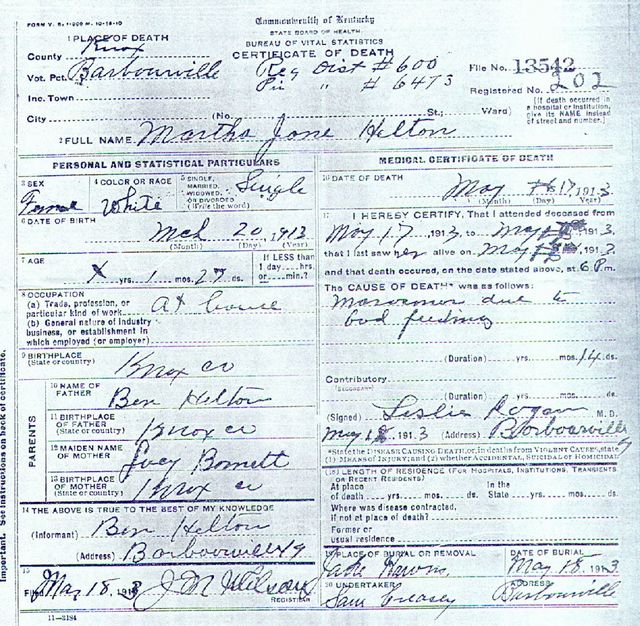 FORM V. S. 1-200 M. 10-19-10
Commonwealth of Kentucky
STATE BOARD OF HEALTH.
BUREAU OF VITAL STATISTICS
CERTIFICATE OF DEATH
1 PLACE OF DEATH
County Knox
Vot. Pct. Barbourville
Reg Dist # 600
Pri " # 6473
File No. 13542
Registered No. 202
Inc. Town
City (No. St.; Ward)
[If death occurred in a hospital or institution, give its NAME instead of street and number.]
2 FULL NAME Martha Jane Helton
PERSONAL AND STATISTICAL PARTICULARS
3 SEX Female
4 COLOR OR RACE White
5 SINGLE, MARRIED, WIDOWED, OR DIVORCED (Write the word) Single
6 DATE OF BIRTH
Mch 20, 1913
(Month) (Day) (Year)
7 AGE
X yrs. 1 mos. 27 ds.
If LESS than 1 day....hrs. or....min.?
8 OCCUPATION
(a) Trade, profession, or particular kind of work
(b) General nature of industry business, or establishment in which employed (or employer)
9 BIRTHPLACE (State or country) Knox co
PARENTS
10 NAME OF FATHER Ben Helton
11 BIRTHPLACE OF FATHER (State or country) Knox co
12 MAIDEN NAME OF MOTHER Lucy
13 BIRTHPLACE OF MOTHER (State or country) Knox co
14 THE ABOVE IS TRUE TO THE BEST OF MY KNOWLEDGE
(Informant) Ben Helton
(Address) Barbourville Ky
15
Filed May 18, 1913 J M Wilson
REGISTRAR
11-3184
MEDICAL CERTIFICATE OF DEATH
16 DATE OF DEATH
May 17, 1913
(Month) (Day) (Year)
17 I HEREBY CERTIFY, That I attended deceased from
May 17, 1913, to May 1913,
that I last saw her alive on May 1913
and that death occurred, on the date stated above, at 6 P.m.
The CAUSE OF DEATH* was as follows:
due to
bad feeding
(Duration) yrs. mos. 14 ds.
Contributory
(SECONDARY)
(Duration) yrs. mos. ds.
(Signed) Leslie Logan M. D.
May 18, 1913 (Address) Barbourville Ky
*State the DISEASE CAUSING DEATH, or, in deaths from VIOLENT CAUSES, state (1) MEANS OF INJURY; and (2) whether ACCIDENTAL, SUICIDAL or HOMICIDAL
18 LENGTH OF RESIDENCE (FOR HOSPITALS, INSTITUTIONS, TRANSIENTS OR RECENT RESIDENTS)
At place of death yrs. mos. ds. In the State yrs. mos. ds.
Where was disease contracted, if not at place of death?
Former or usual residence
19 PLACE OF BURIAL OR REMOVAL
DATE OF BURIAL
May 18, 1913
20 UNDERTAKER
Sam
ADDRESS
Barbourville
Important. See instructions on back of certificate.